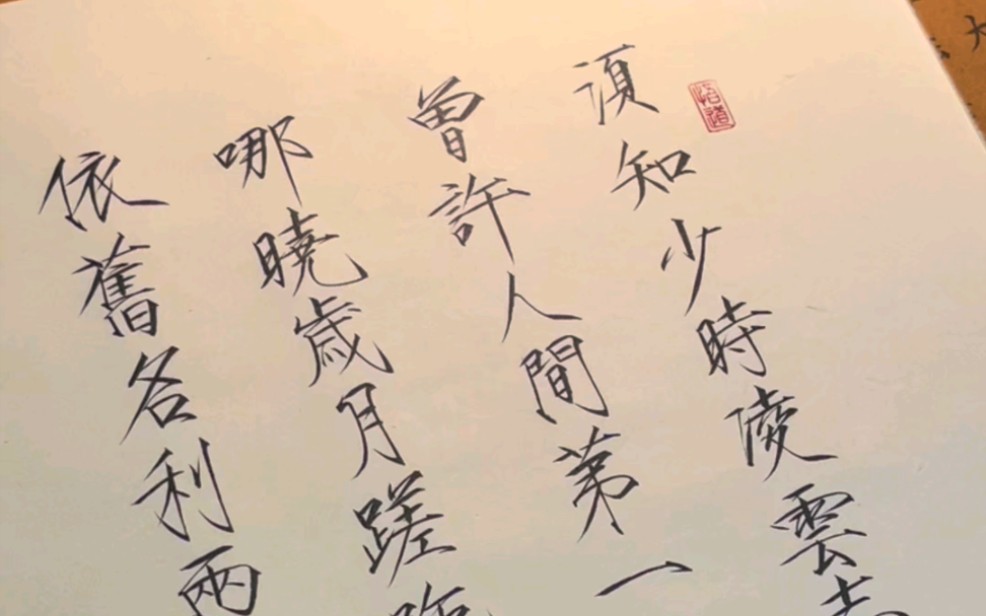 須知少時凌雲志
曾許人間第一
哪曉歲月蹉
依舊各利兩
悟道